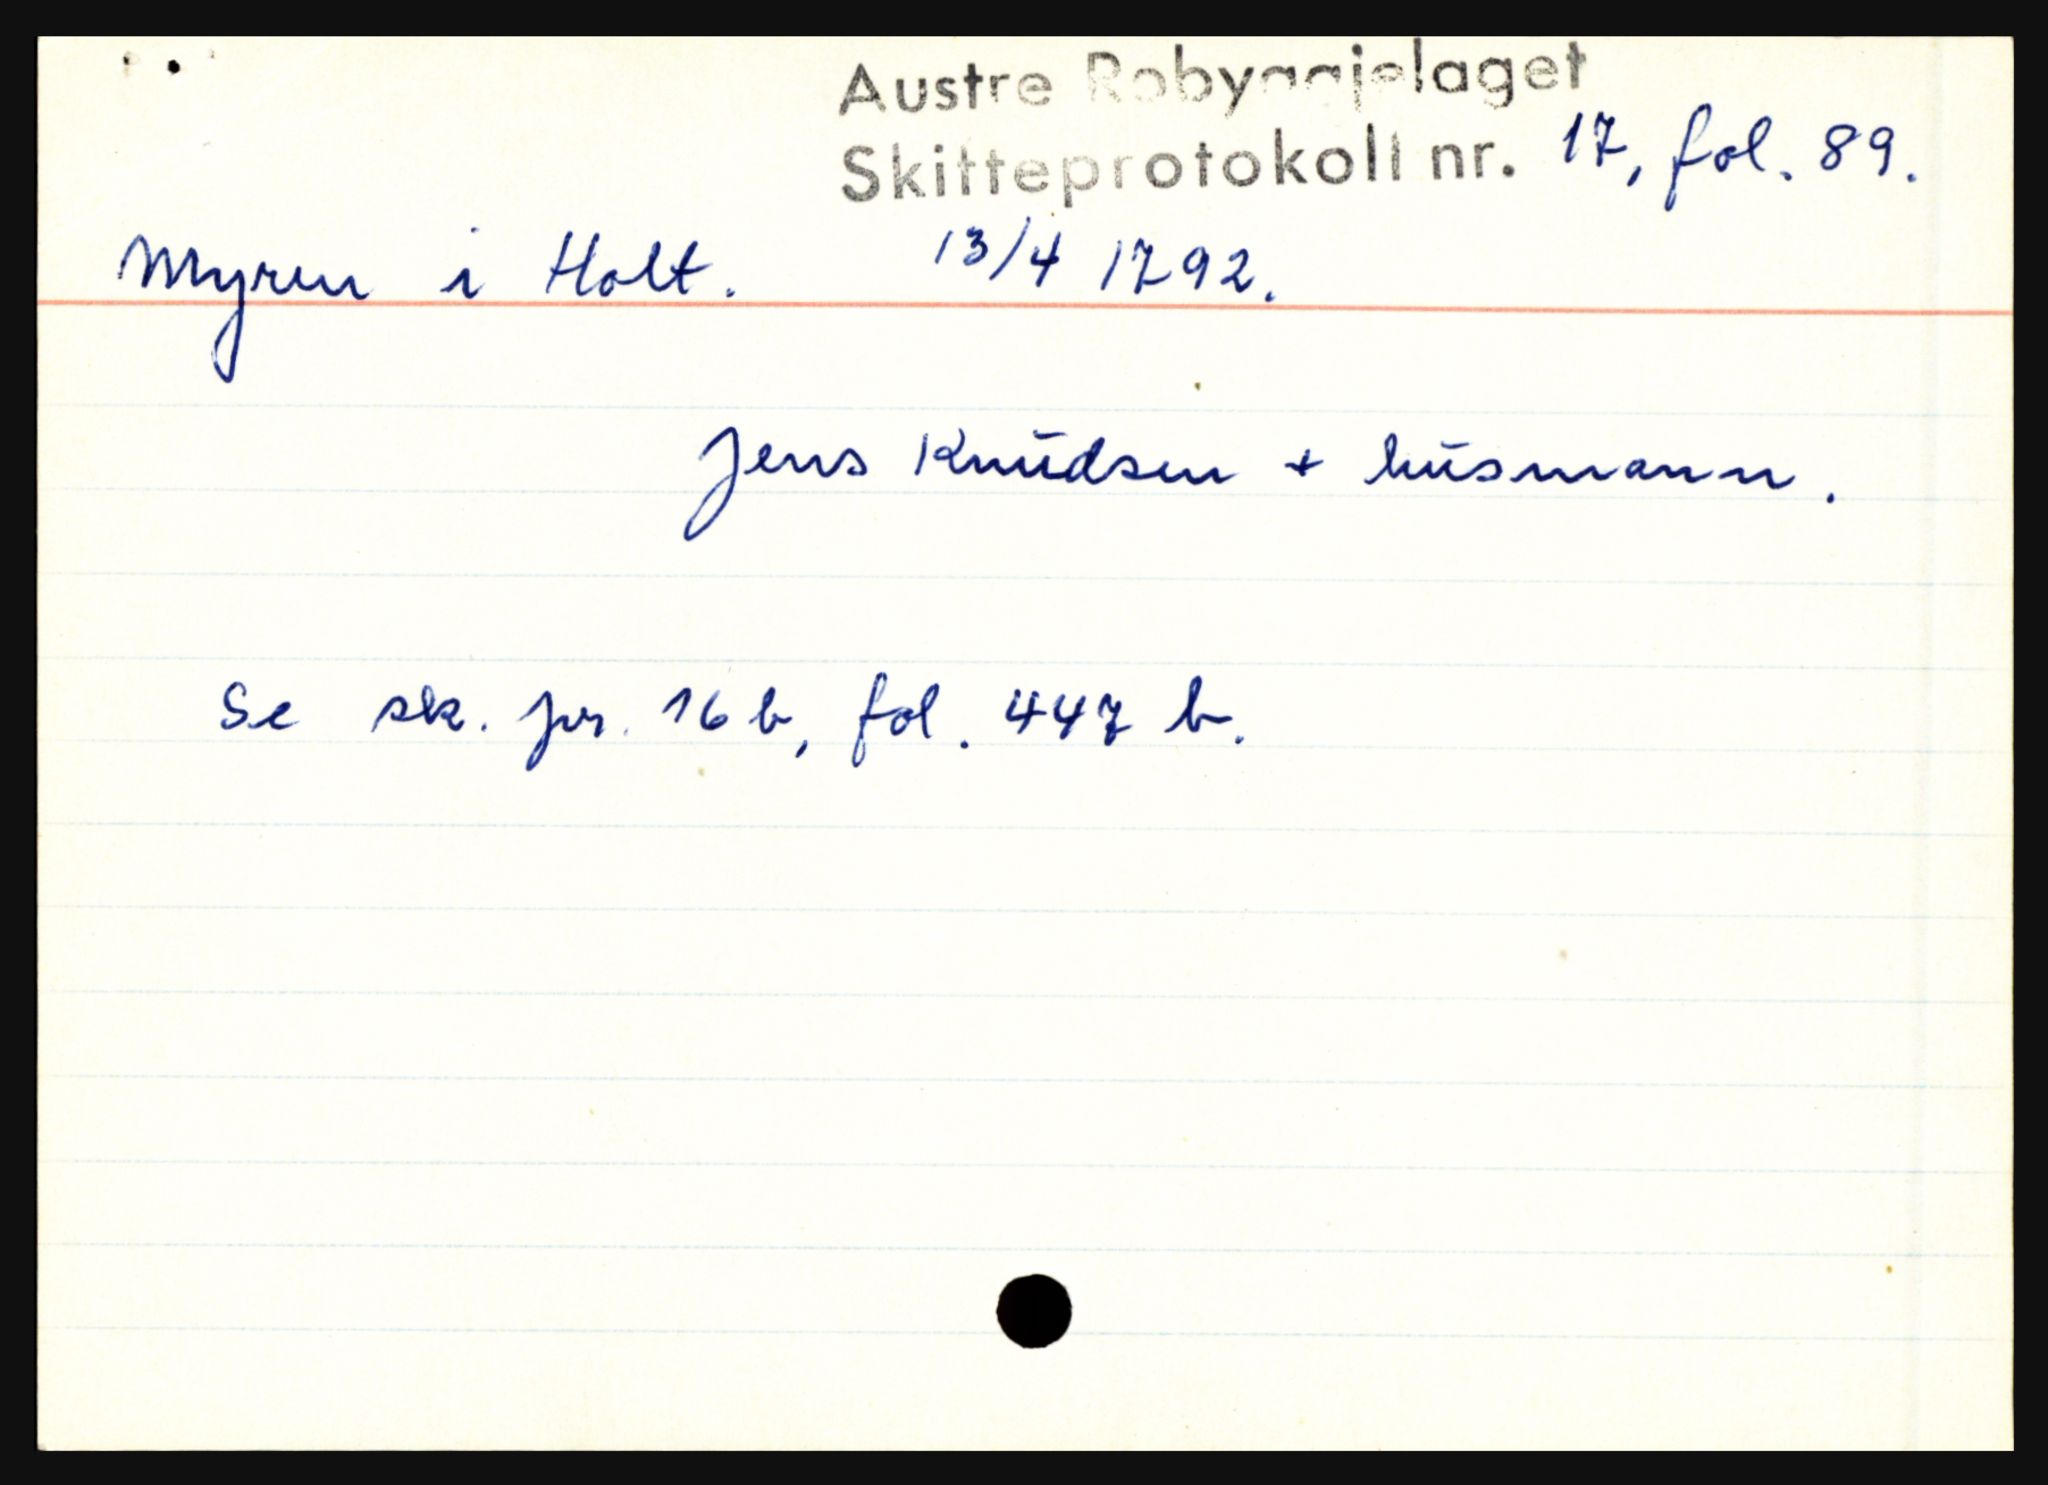 Austre Robyggjelaget
Skifteprotokoll nr. 17, fol. 89.
Myren i Holt. 13/4 1792.
Jens Knudsen + husmann.
Se sk. pr. 16 b, fol. 447 b.